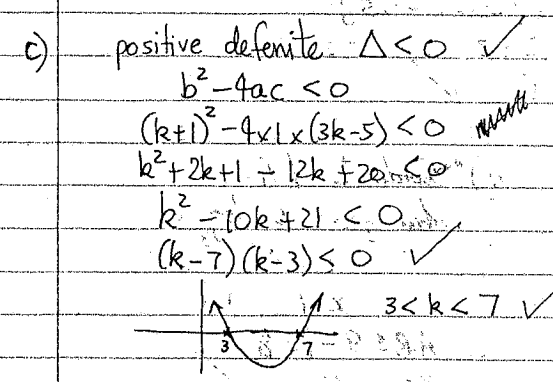 c) positive defenite. Δ<0 ✓
b²-4ac <0
(k+1)²-4×1×(3k-5)<0
k²+2k+1-12k+20<0
k²-10k+21<0
(k-7)(k-3)<0 ✓
3<k<7 ✓
3 7